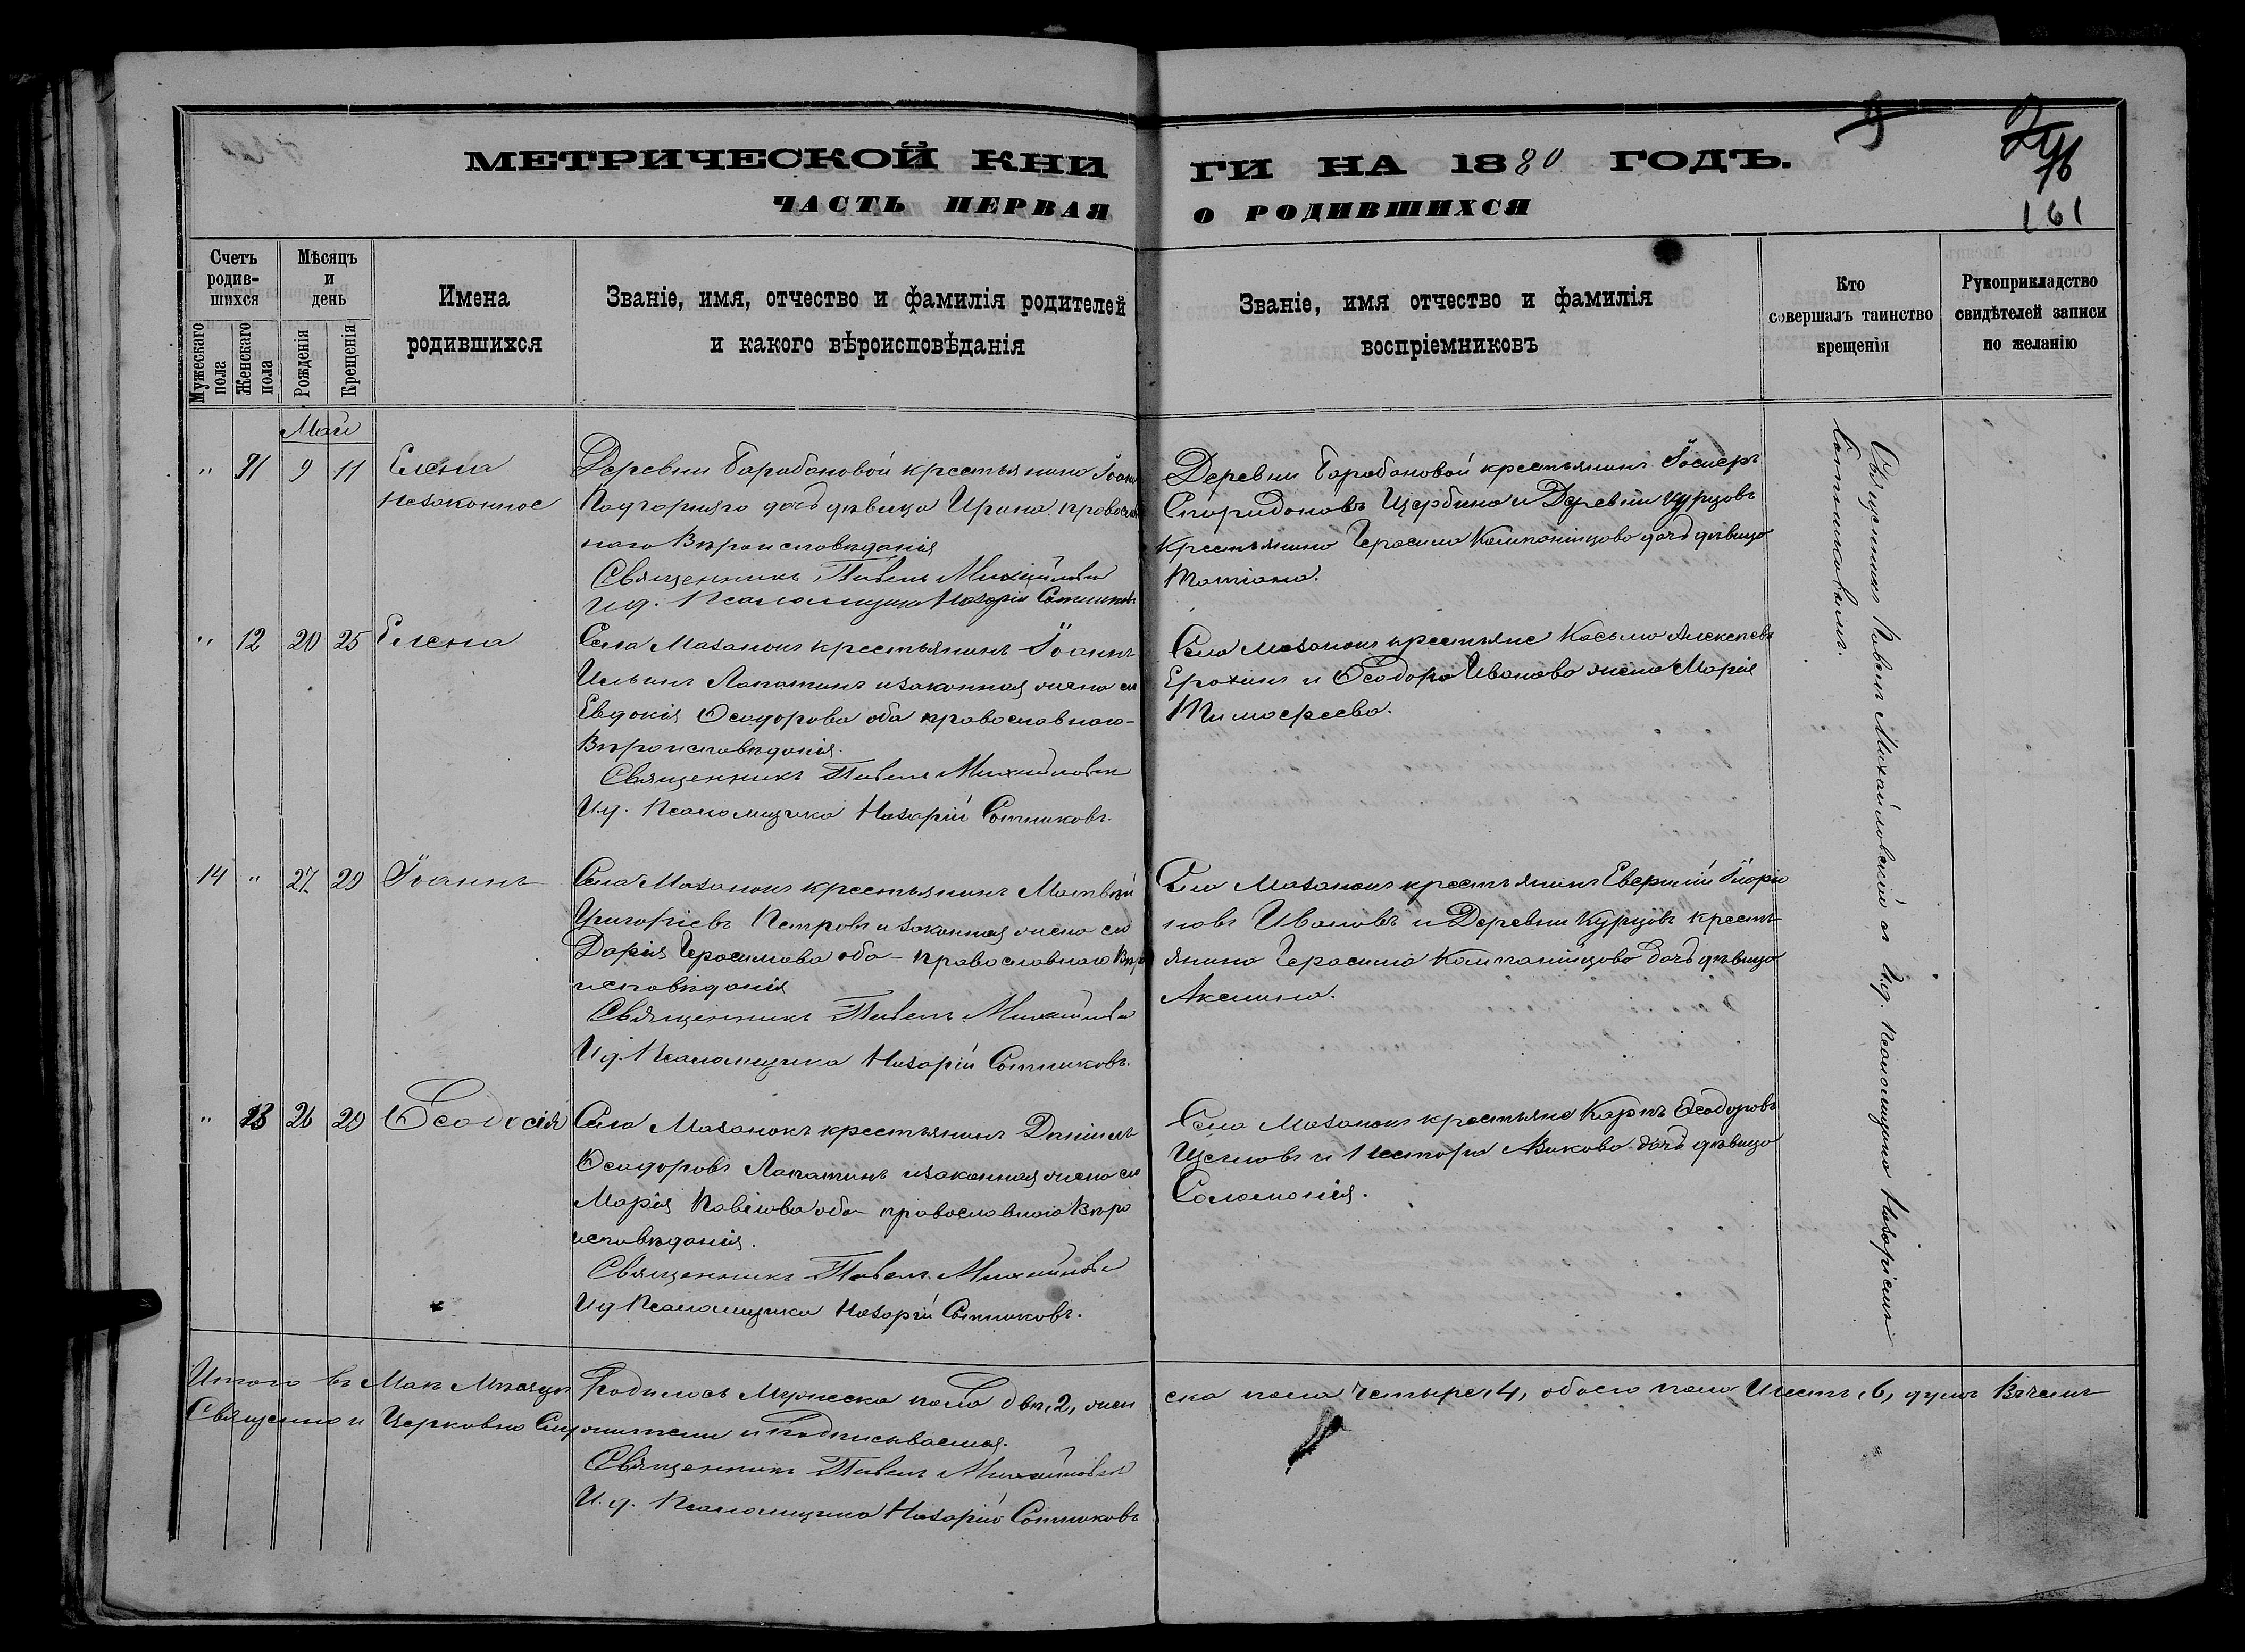 МЕТРИЧЕСКОЙ КНИ ГИ НА 1880 ГОДЪ.
ЧАСТЬ ПЕРВАЯ О РОДИВШИХСЯ
161
Счетъ родив-шихся
Мужескаго пола
Женскаго пола
Мѣсяцъ и день
Рожденія
Крещенія
Имена родившихся
Званіе, имя, отчество и фамилія родителей
и какого вѣроисповѣданія
Званіе, имя отчество и фамилія
воспріемниковъ
Кто
совершалъ таинство
крещенія
Рукоприкладство
свидѣтелей записи
по желанію
Май
" 11 9 11 Елена
незаконное
Деревни Барабановой крестьянина Іоанна
Подгорняго дочь дѣвица Ирина православ
наго Вѣроисповѣданія
Священникъ Павелъ Михайловскій
И.д. Псаломщика Назарій Сотниковъ
Деревни Барабановой крестьянинъ
Спиридоновъ Щербина и Деревни Курцовъ
крестьянина Герасима Компанійцова дочь дѣвица
Татіана.
" 12 20 25 Елена
Села Мазанокъ крестьянинъ Іоаннъ
Ильинъ Лапатинъ и законная жена его
Евдокія Ѳеодорова оба православнаго
Вѣроисповѣданія.
Священникъ Павелъ Михайловскій
И.д. Псаломщика Назарій Сотниковъ.
Села Мазанокъ крестьяне Косьма Алексѣевъ
Ерохинъ и Ѳеодора Иванова жена Марія
Тимоѳеева.
14 " 27 29 Іоаннъ
Села Мазанокъ крестьянинъ Матвѣй
Григорьевъ Петровъ и законная жена его
Дарія Герасимова оба православнаго Вѣро
исповѣданія
Священникъ Павелъ Михайловскій
И.д. Псаломщика Назарій Сотниковъ.
Села Мазанокъ крестьянинъ
новъ Ивановъ и Деревни Курцовъ кресть
янина Герасима Компанійцова дочь дѣвица
Аксинія.
" 13 26 29 Ѳеодосія
Села Мазанокъ крестьянинъ Даніилъ
Ѳеодоровъ Лапатинъ и законная жена его
Марія Павлова оба православнаго Вѣро
исповѣданія.
Священникъ Павелъ Михайловскій
И.д. Псаломщика Назарій Сотниковъ.
Села Мазанокъ крестьяне Карпъ Ѳеодоровъ
и Нестора дочь дѣвица
Соломонія.
Священникъ Павелъ Михайловскій съ И.д. Псаломщика Назаріемъ
Сотниковымъ.
Итого въ Маѣ Мѣсяцѣ Родилось Мужеска пола два, 2, жен ска пола четыре, 4, обоего пола Шесть, 6, душъ В чемъ
Священно и Церковно Служители и подписываемся.
Священникъ Павелъ Михайловскій
И.д. Псаломщика Назарій Сотниковъ